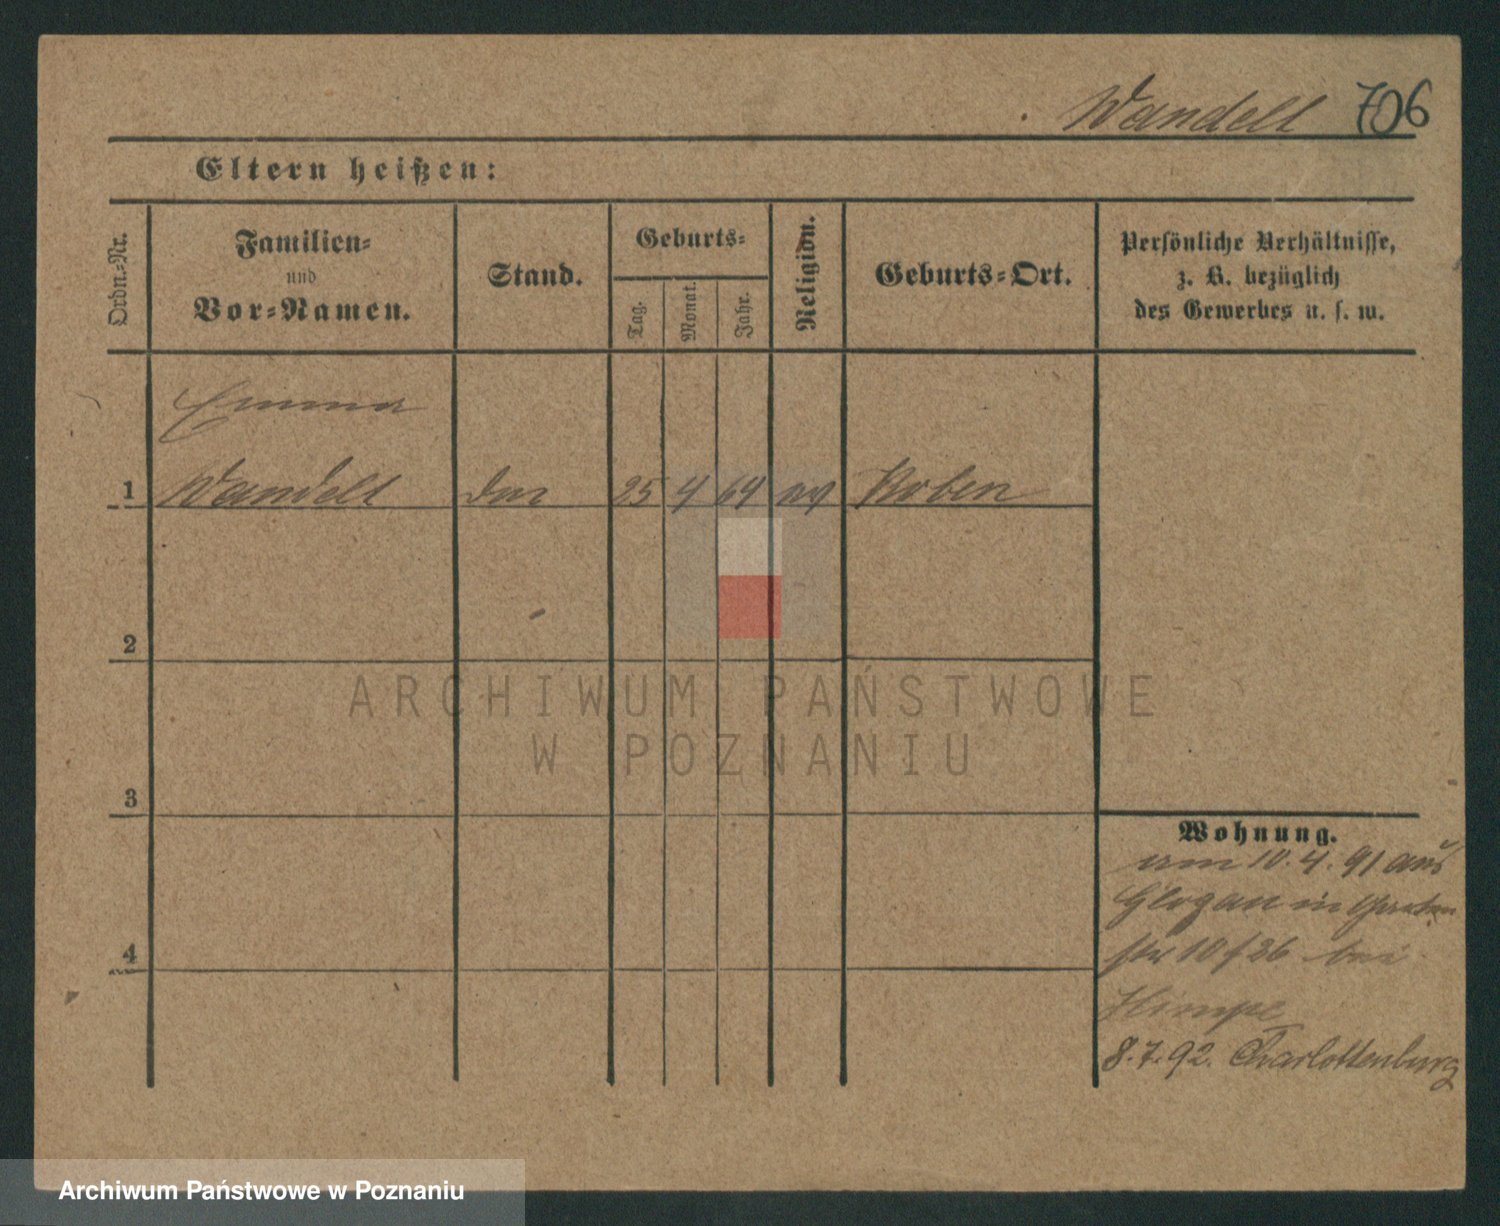 Wandelt 706
Eltern heißen:
Ordn.-Nr.
Familien-
und
Vor-Namen.
Stand.
Geburts-
Tag.
Monat.
Jahr.
Religion.
Geburts-Ort.
Persönliche Verhältnisse,
z. B. bezüglich
des Gewerbes u. s. w.
Emma
1 Wandelt 25 4 64 ev Koben
2
3
4
Wohnung.
am 10.4.91 aus
Glogau in Garten
str 10 / 26 bei
Himpe
8.7.92. Charlottenburg
ARCHIWUM PAŃSTWOWE
W POZNANIU
Archiwum Państwowe w Poznaniu